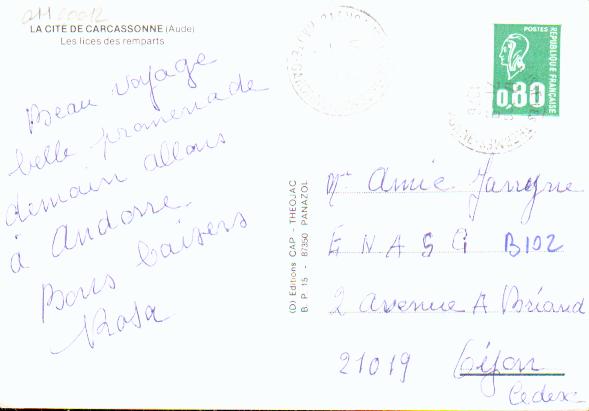 LA CITE DE CARCASSONNE (Aude)
Les lices des remparts
Beau voyage
belle promenade
demain allons
à Andorre
Bons baisers
Rosa
(D) Editions CAP - THEOJAC
B P 15 - 87350 PANAZOL
POSTES
0,80
REPUBLIQUE FRANÇAISE
Amie
E N A S G B102
2 avenue A Briand
21019 Dijon
Cedex